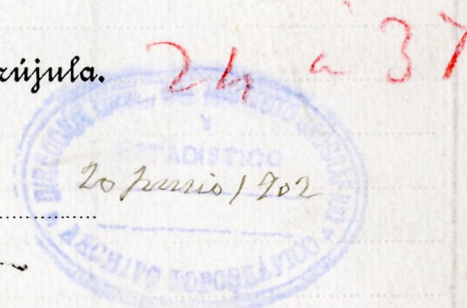 rújula.
24 a 37
DIRECCION GRAL. DEL INSTITUTO GEOGRÁFICO
Y
ESTADÍSTICO
20 Junio 1902
ARCHIVO TOPOGRÁFICO